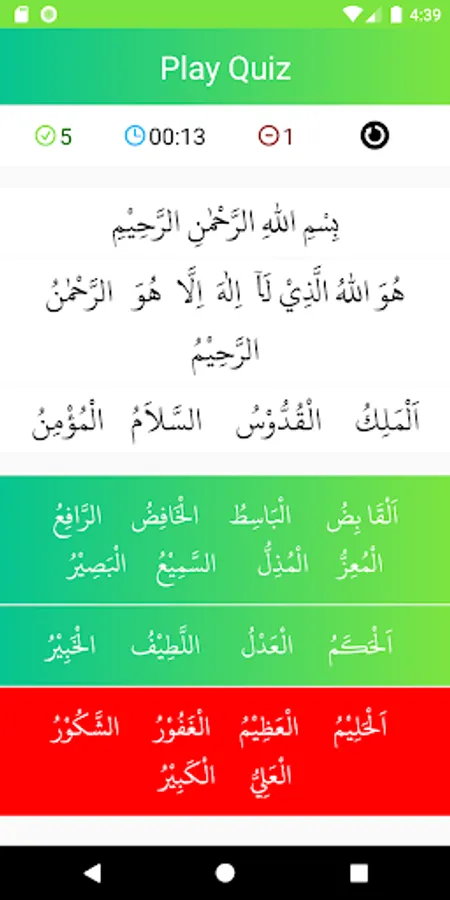 4:39
Play Quiz
5 00:13 1
بِسْمِ اللهِ الرَّحْمٰنِ الرَّحِيْمِ
هُوَ اللهُ الَّذِيْ لَآ اِلٰهَ اِلَّا هُوَ الرَّحْمٰنُ
الرَّحِيْمُ
اَلْمَلِكُ الْقُدُّوْسُ السَّلاَمُ الْمُؤْمِنُ
اَلْقَا بِضُ الْبَاسِطُ الْخَافِضُ الرَّافِعُ
الْمُعِزُّ الْمُذِلُّ السَّمِيْعُ الْبَصِيْرُ
اَلْحَكَمُ الْعَدْلُ اللَّطِيْفُ الْخَبِيْرُ
اَلْحَلِيْمُ الْعَظِيْمُ الْغَفُوْرُ الشَّكُوْرُ
الْعَلِيُّ الْكَبِيْرُ